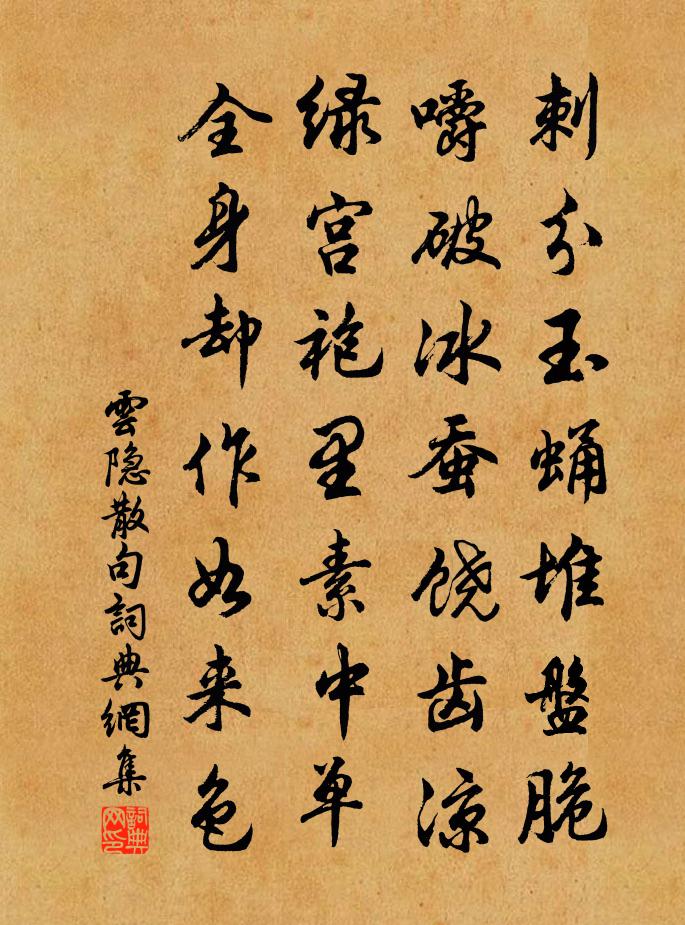 刺分玉蛹堆盤脆
嚼破冰蚕饶齿凉
绿宫袍里素中单
全身却作如来色
雲隐散句詞典網集
詞典网印